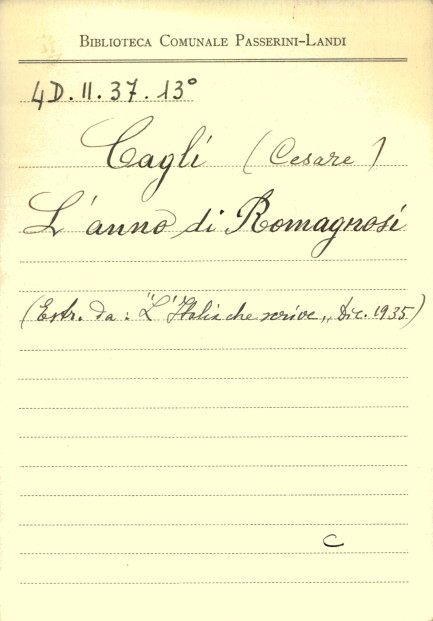 BIBLIOTECA COMUNALE PASSERINI-LANDI
4D.II.37.13°
Cagli (Cesare)
L'anno di Romagnosi
(Estr. da: "L'Italia che scrive„ Dic. 1935)
C